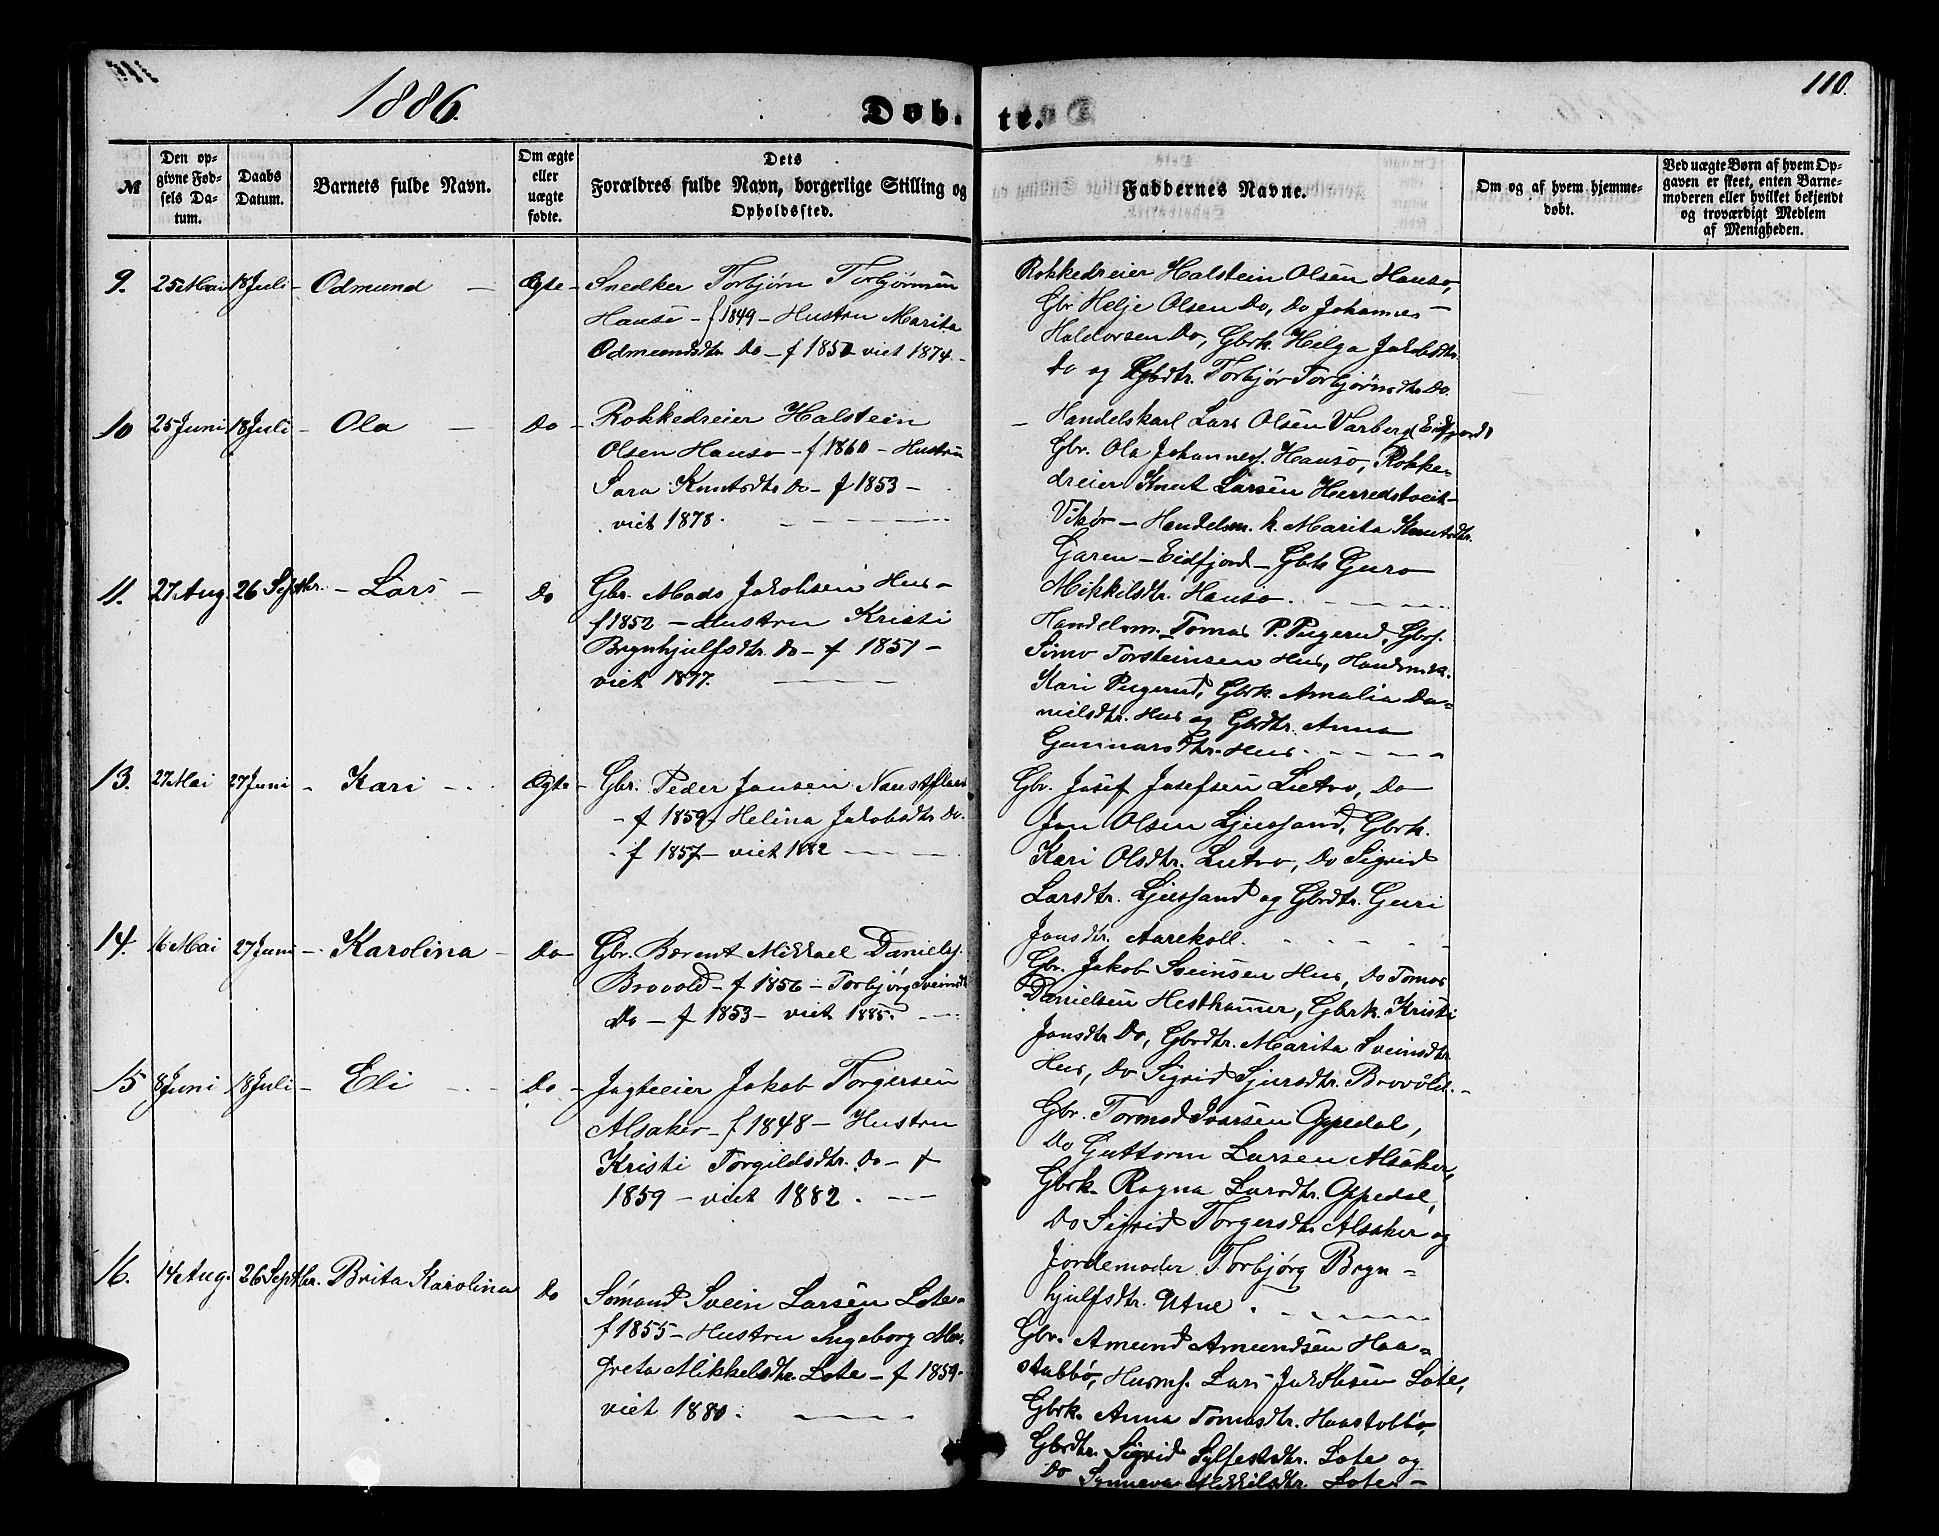 1886.
Døbte.
110.
№
Den opgivne Fødsels Datum.
Daabs Datum.
Barnets fulde Navn.
Om ægte eller uægte fødte.
Dets Forældres fulde Navn, borgerlige Stilling og Opholdssted.
Faddernes Navne.
Om og af hvem hjemmedøbt.
Ved uægte Børn af hvem Opgaven er skeet, enten Barnemoderen eller hvilket bekjendt og troværdigt Medlem af Menigheden.
9. 25 Mai 18 Juli - Odmund - Ægte -
Snedker Torbjørn Torbjørnsen
Hauso - f 1849 - Hustru Marita
Odmundsdtr. Do - f 1850 viet 1874 -
Rokkedreier Halstein Olsen Hauso,
Gbr Helje Olsen Do, Do Johannes
Haldorsen Do, Gbrk. Helga Jakobsdtr.
Do og Gbdtr. Torbjør Torbjørnsdtr. Do.
10 25 Juni 18 Juli - Ola - Do -
Rokkedreier Halstein
Olsen Hauso - f 1860 - Hustru
Sara Knutsdtr. Do - f 1853 -
viet 1878.
- Handelskarl Lars Olsen Varberg, Eidfjord,
Gbr. Ola Johanness. Hauso, Rokke=
dreier Knut Larsen Herredstveit
Vikør - Handelsm. k. Marita Knutsdtr.
Garen - Eidfjord - Gbk Guro
Mikkelsdtr. Hauso.
11. 27 Aug. 26 Septbr. - Lars - Do
Gbr. Mads Jakobsen Hus -
f 1852 - Hustru Kristi
Brynhjulfsdtr. Do - f 1851 -
viet 1877.
Handelsm. Tomas P. Pugerud, Gbrs.
Simo Torsteinsen Hus, Handm. k.
Kari Pugerud, Gbrk. Amalia Da=
nielsdtr. Hus og Gbrdtr. Anna
Gunnarsdtr. Hus.
13. 27 Mai 27 Juni - Kari - Ægte -
Gbr. Peder Jansen Naustflaat
- f 1859 - Helina Jakobsdtr. Do.
f 1857 - viet 1882
Gbr. Josef Josefsen Lutro, Do
Jon Olsen Ljussand, Gbrk.
Kari Olsdtr. Lutro, Do Sigrid
Larsdtr. Ljussand og Gbrdtr. Guri
Jonsdtr. Aarekoll.
14. 16 Mai 27 Juni - Karolina - Do -
Gbr. Berent Mikkael Daniels.
Brovold - f 1856 - Torbjørg Sveinsdtr
Do - f 1853 - viet 1885.
Gbr. Jakob Sveinsen Hus, Do Tomas
Danielsen Hesthamer, Gbrk. Kristi
Jonsdtr. Do, Gbrdtr. Marita Sveinsdtr.
Hus, Do Sigrid Sjursdtr. Brovold. -
15 8 Juni 18 Juli - Eli - Do -
Jagteeier Jakob Torgersen
Alsaker - f 1848 - Hustru
Kristi Torgilsdtr. Do - f
1859 - viet 1882.
Gbr. Tormod Ivarsen Oppedal,
Do Guttorm Larsen Alsaker,
Gbrk. Ragna Larsdtr. Oppedal,
Do Sigrid Torgersdtr. Alsaker og
Jordemoder Torbjørg Bryn=
hjulfsdtr. Utne.
16. 14 Aug. 26 Septbr. Brita Karolina Do
Sømand Svein Larsen Lote
f 1855 - Hustru Ingeborg Mar=
greta Mikkelsdtr. Lote - f 1859.
viet 1880.
Gbr. Amund Amundsen Haa=
stabbø, Husms. Lars Jakobsen Lote,
Gbrk. Anna Tomasdtr. Haastabbø,
Gbrdtr. Sigrid Sylfestsdtr. Lote og
Do Synneva Mikkelsdtr. Lote -